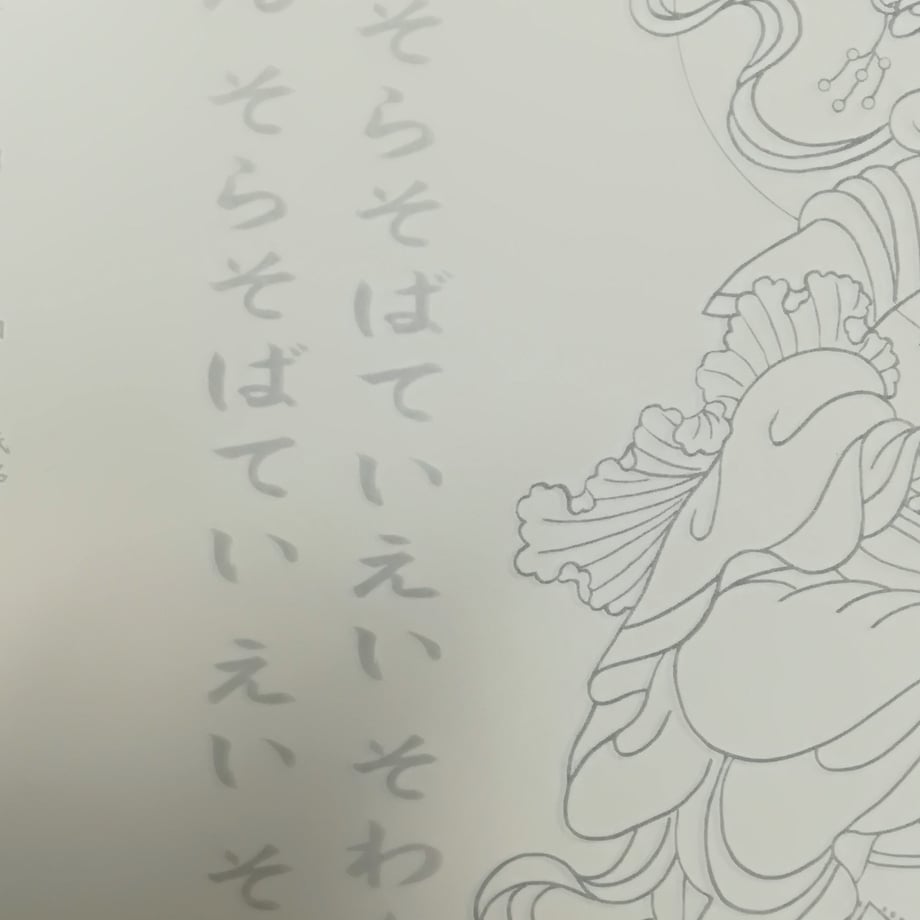 そらそばていえい そわ
そらそばてい えい そ